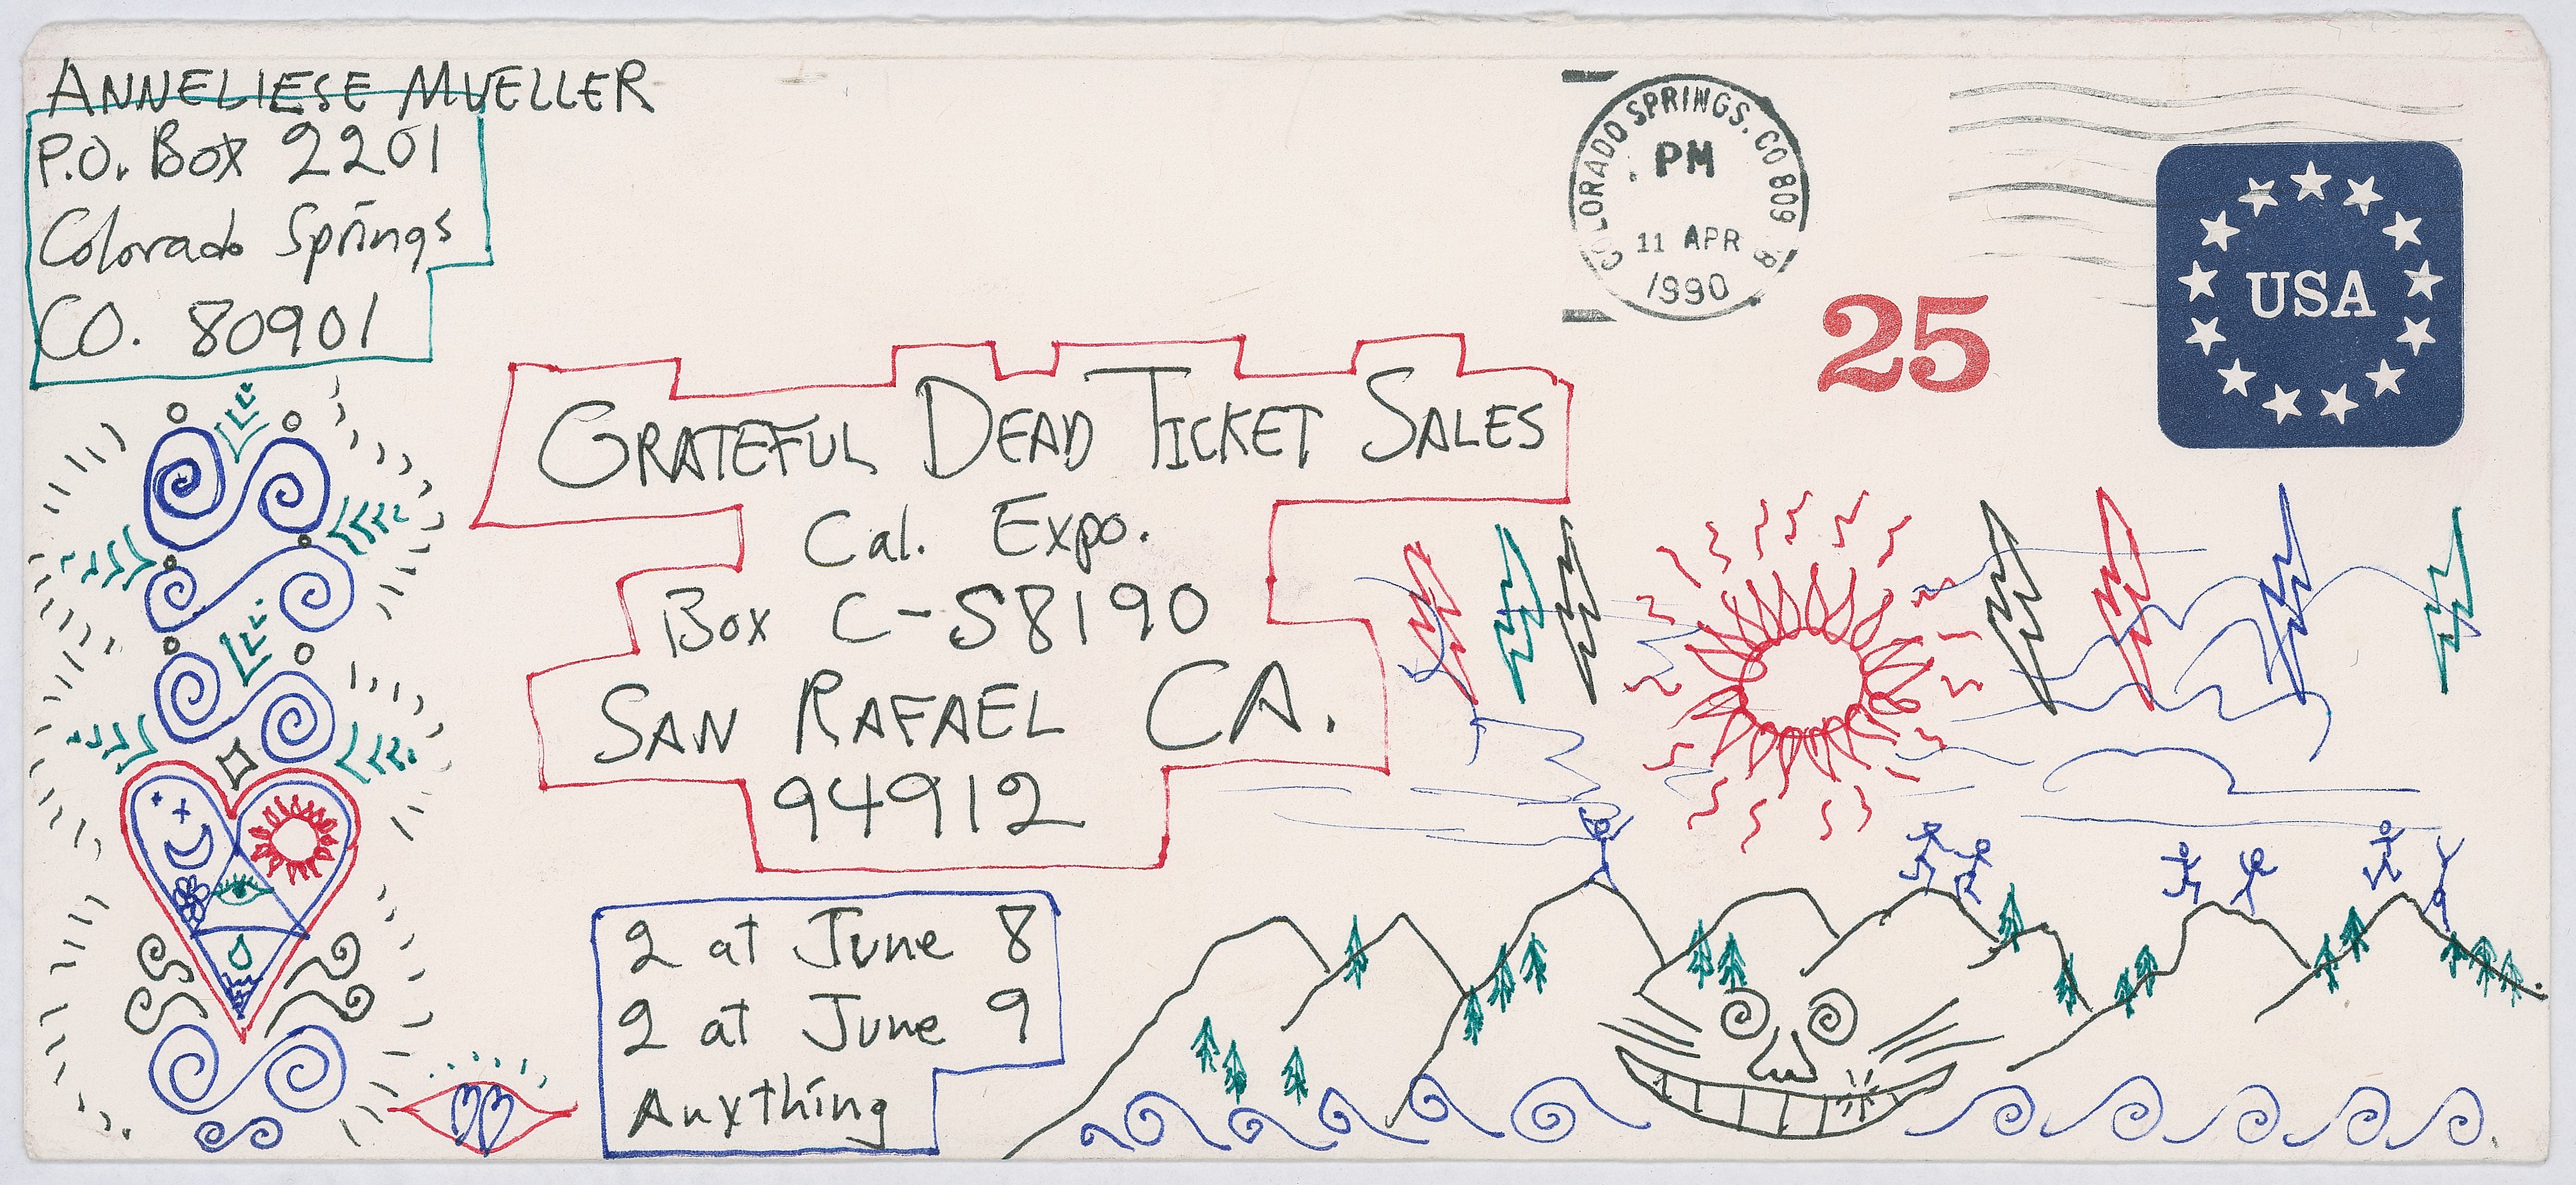 ANNELIESE MUELLER
P.O. Box 2201
Colorado Springs
CO. 80901
COLORADO SPRINGS, CO 809
PM
11 APR
1990
25
USA
GRATEFUL DEAD TICKET SALES
Cal. Expo.
Box C-S8190
SAN RAFAEL CA.
94912
2 at June 8
2 at June 9
Anything